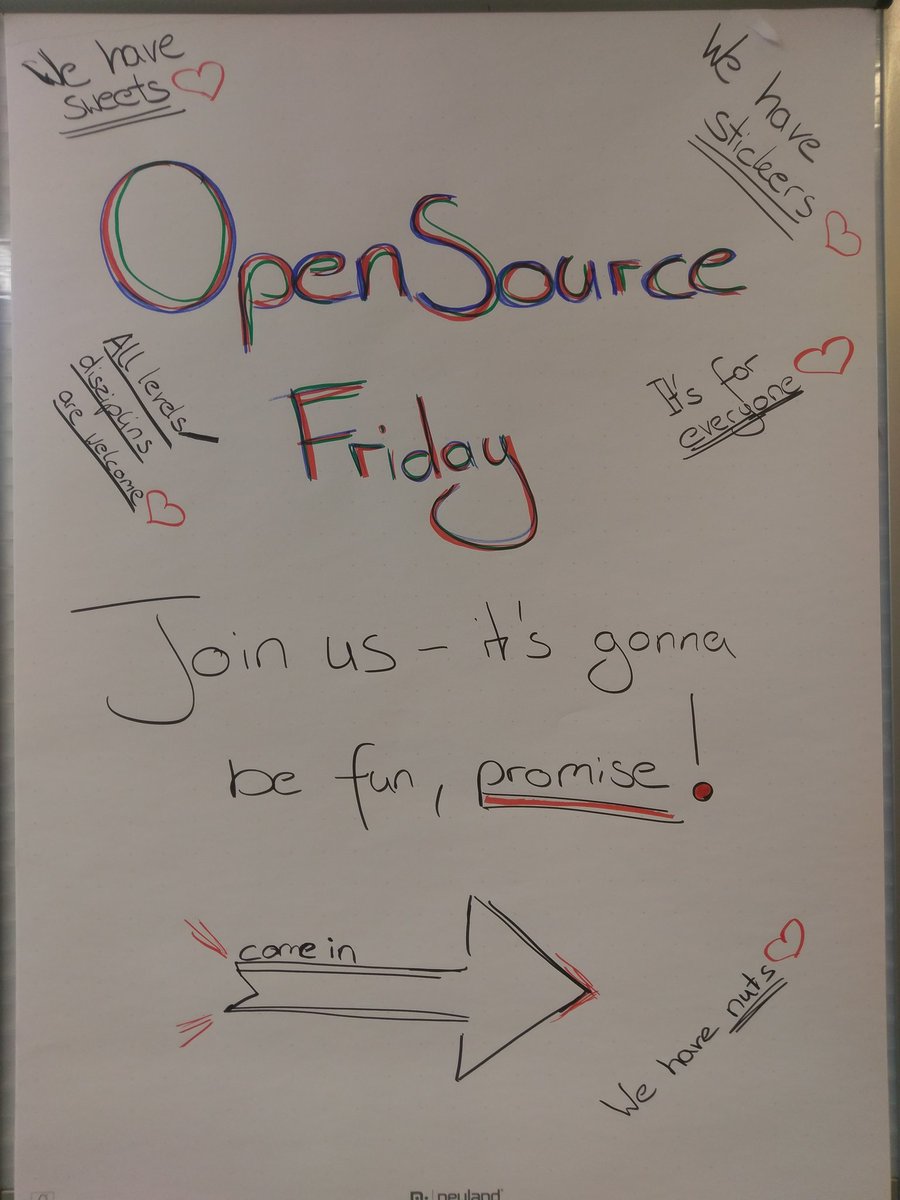 We have
sweets
We have
stickers
OpenSource
All levels/
disziplins
are welcome
It's for
everyone
Friday
Join us - it's gonna
be fun, promise!
come in
We have nuts
neuland